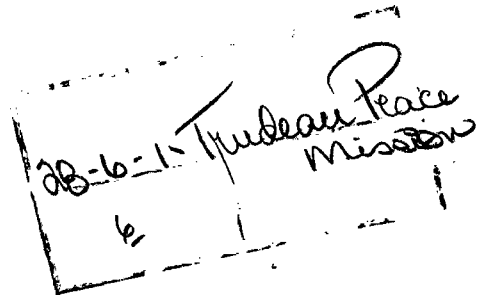 28-6-1-Trudeau Peace
Mission
6